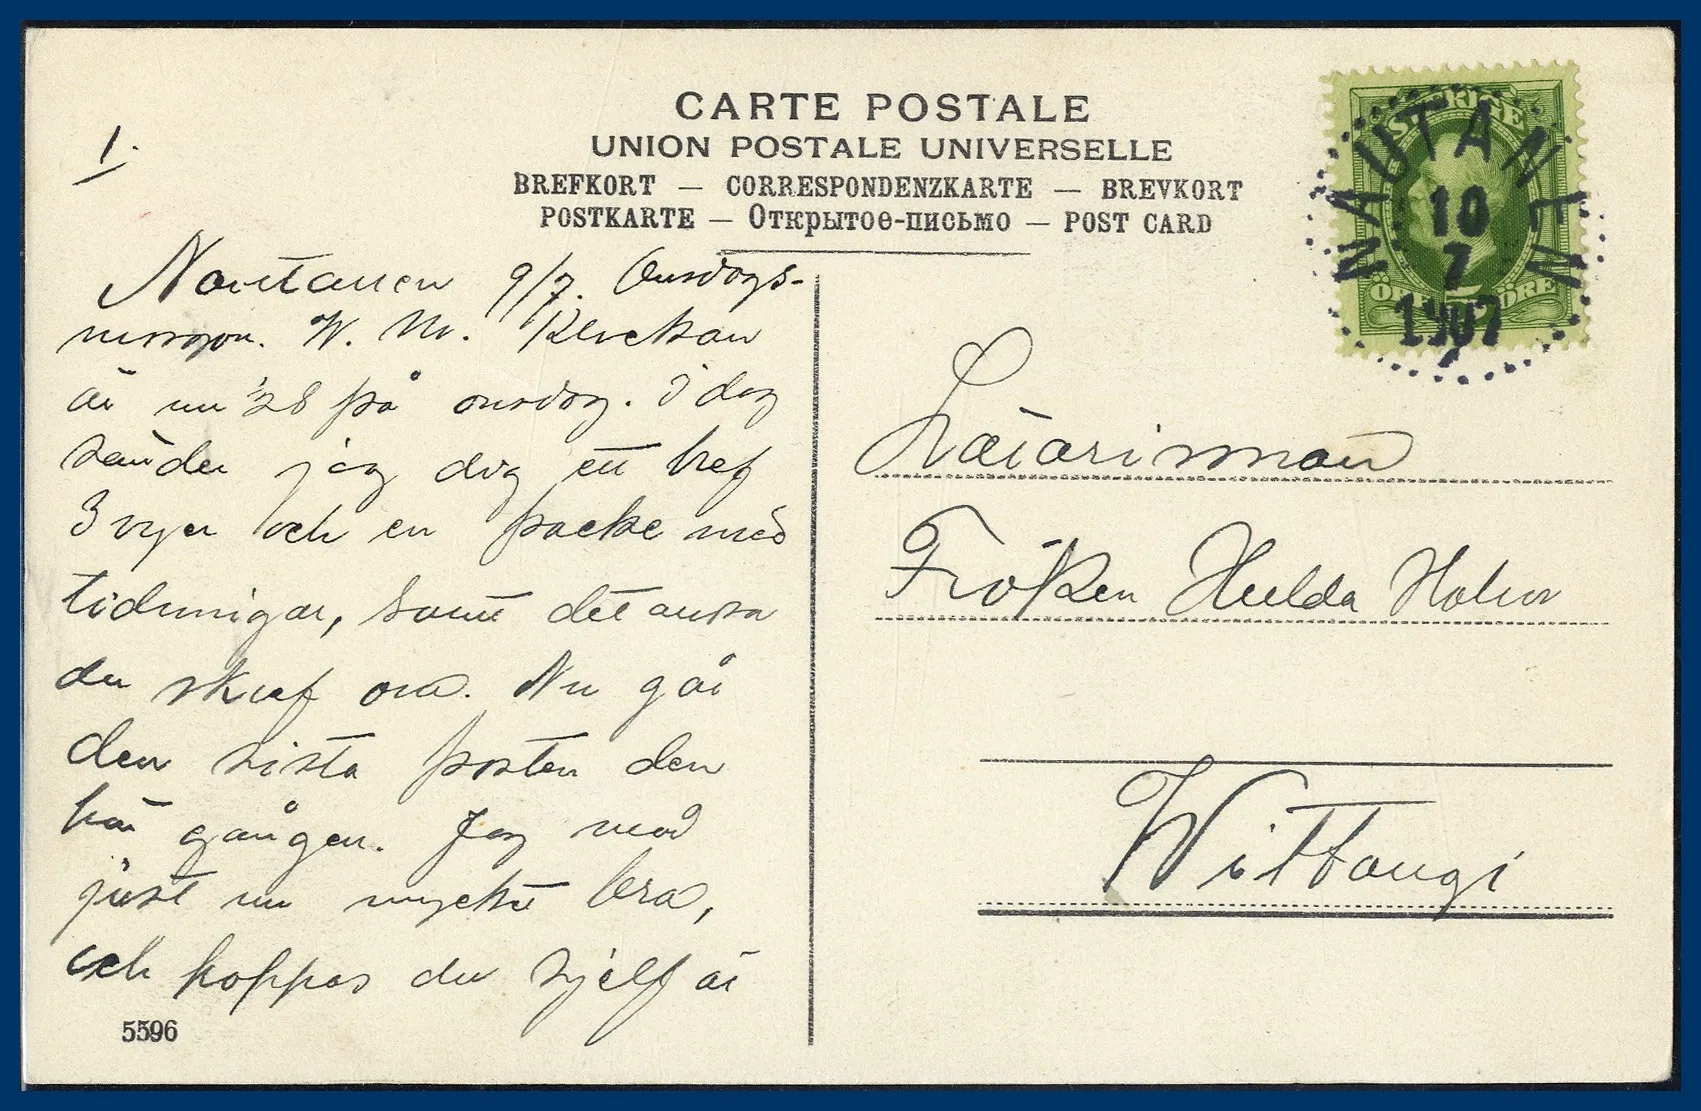 CARTE POSTALE
UNION POSTALE UNIVERSELLE
BREFKORT — CORRESPONDENZKARTE — BREVKORT
POSTKARTE — Открытое-письмо — POST CARD
1.
SVERIGE
ÖRE
NAUTANEN
10
7
1907
Nautanen 9/7. Onsdags-
morgon. W. M. Klockan
är nu ½8 på onsdag. I dag
sänder jag dig ett bref
3 vyer och en packe med
tidningar, samt det andra
du skref om. Nu går
den sista posten den
här gången. Jag mår
just nu mycket bra,
och hoppas du sjelf är
5596
Lärarinnan
Fröken Hulda Holm
Wittangi